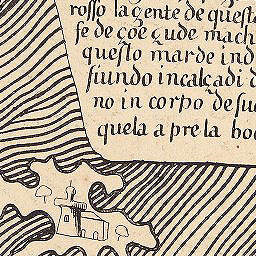 rosso la gente de questo
fe de çoe çude mach
questo marde ind
fuindo incalçadi d
no in corpo de sue
quela aprela boc